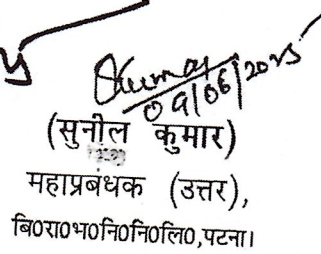 Skumar
09/06/2025
(सुनील कुमार)
महाप्रबंधक (उत्तर),
बि0रा0भ0नि0नि0लि0,पटना।